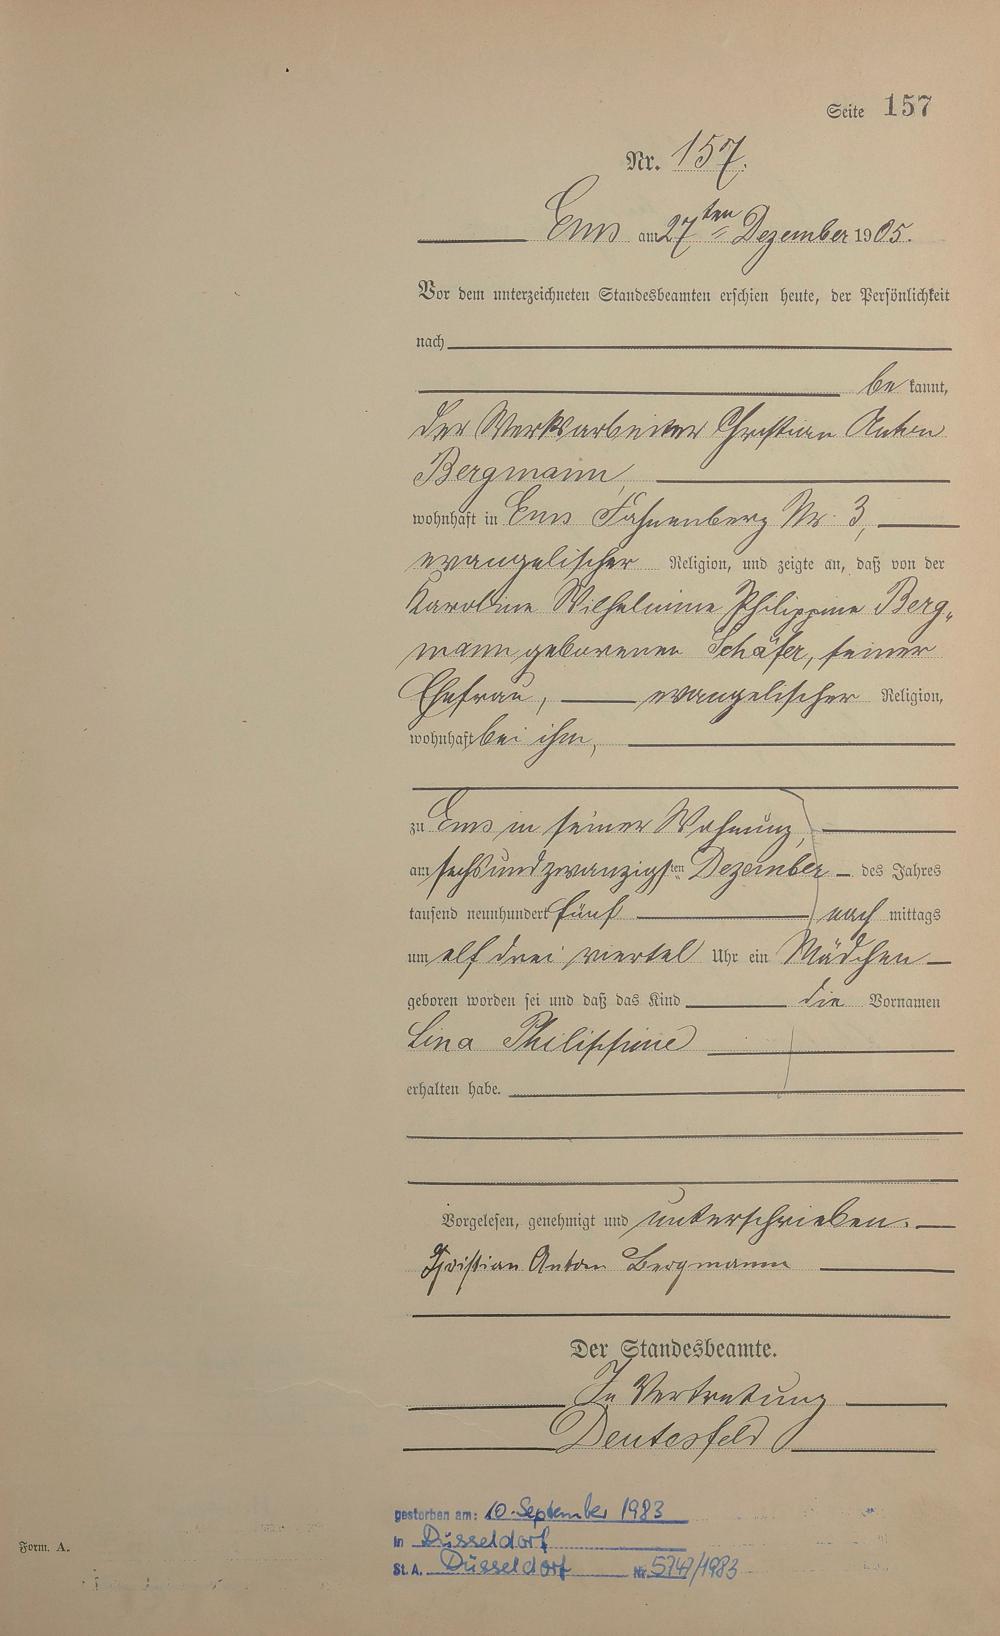 Seite 157
Nr. 157.
Ems am 27ten Dezember 1905.
Vor dem unterzeichneten Standesbeamten erschien heute, der Persönlichkeit
nach
be kannt,
der Werksarbeiter Christian Anton
Bergmann,
wohnhaft in Ems Fahnenberg Nr. 3,
evangelischer Religion, und zeigte an, daß von der
Karoline Wilhelmine Philippine Berg-
mann geborenen Schäfer, seiner
Ehefrau, evangelischer Religion,
wohnhaft bei ihm,
zu Ems in seiner Wohnung,
am sechsundzwanzigsten Dezember des Jahres
tausend neunhundert fünf nach mittags
um elf drei viertel Uhr ein Mädchen
geboren worden sei und daß das Kind die Vornamen
Lina Philippine
erhalten habe.
Vorgelesen, genehmigt und unterschrieben.
Christian Anton Bergmann
Der Standesbeamte.
In Vertretung
Deutesfeld
gestorben am: 10. September 1983
in Düsseldorf
St. A. Düsseldorf Nr. 5747/1983
Form. A.